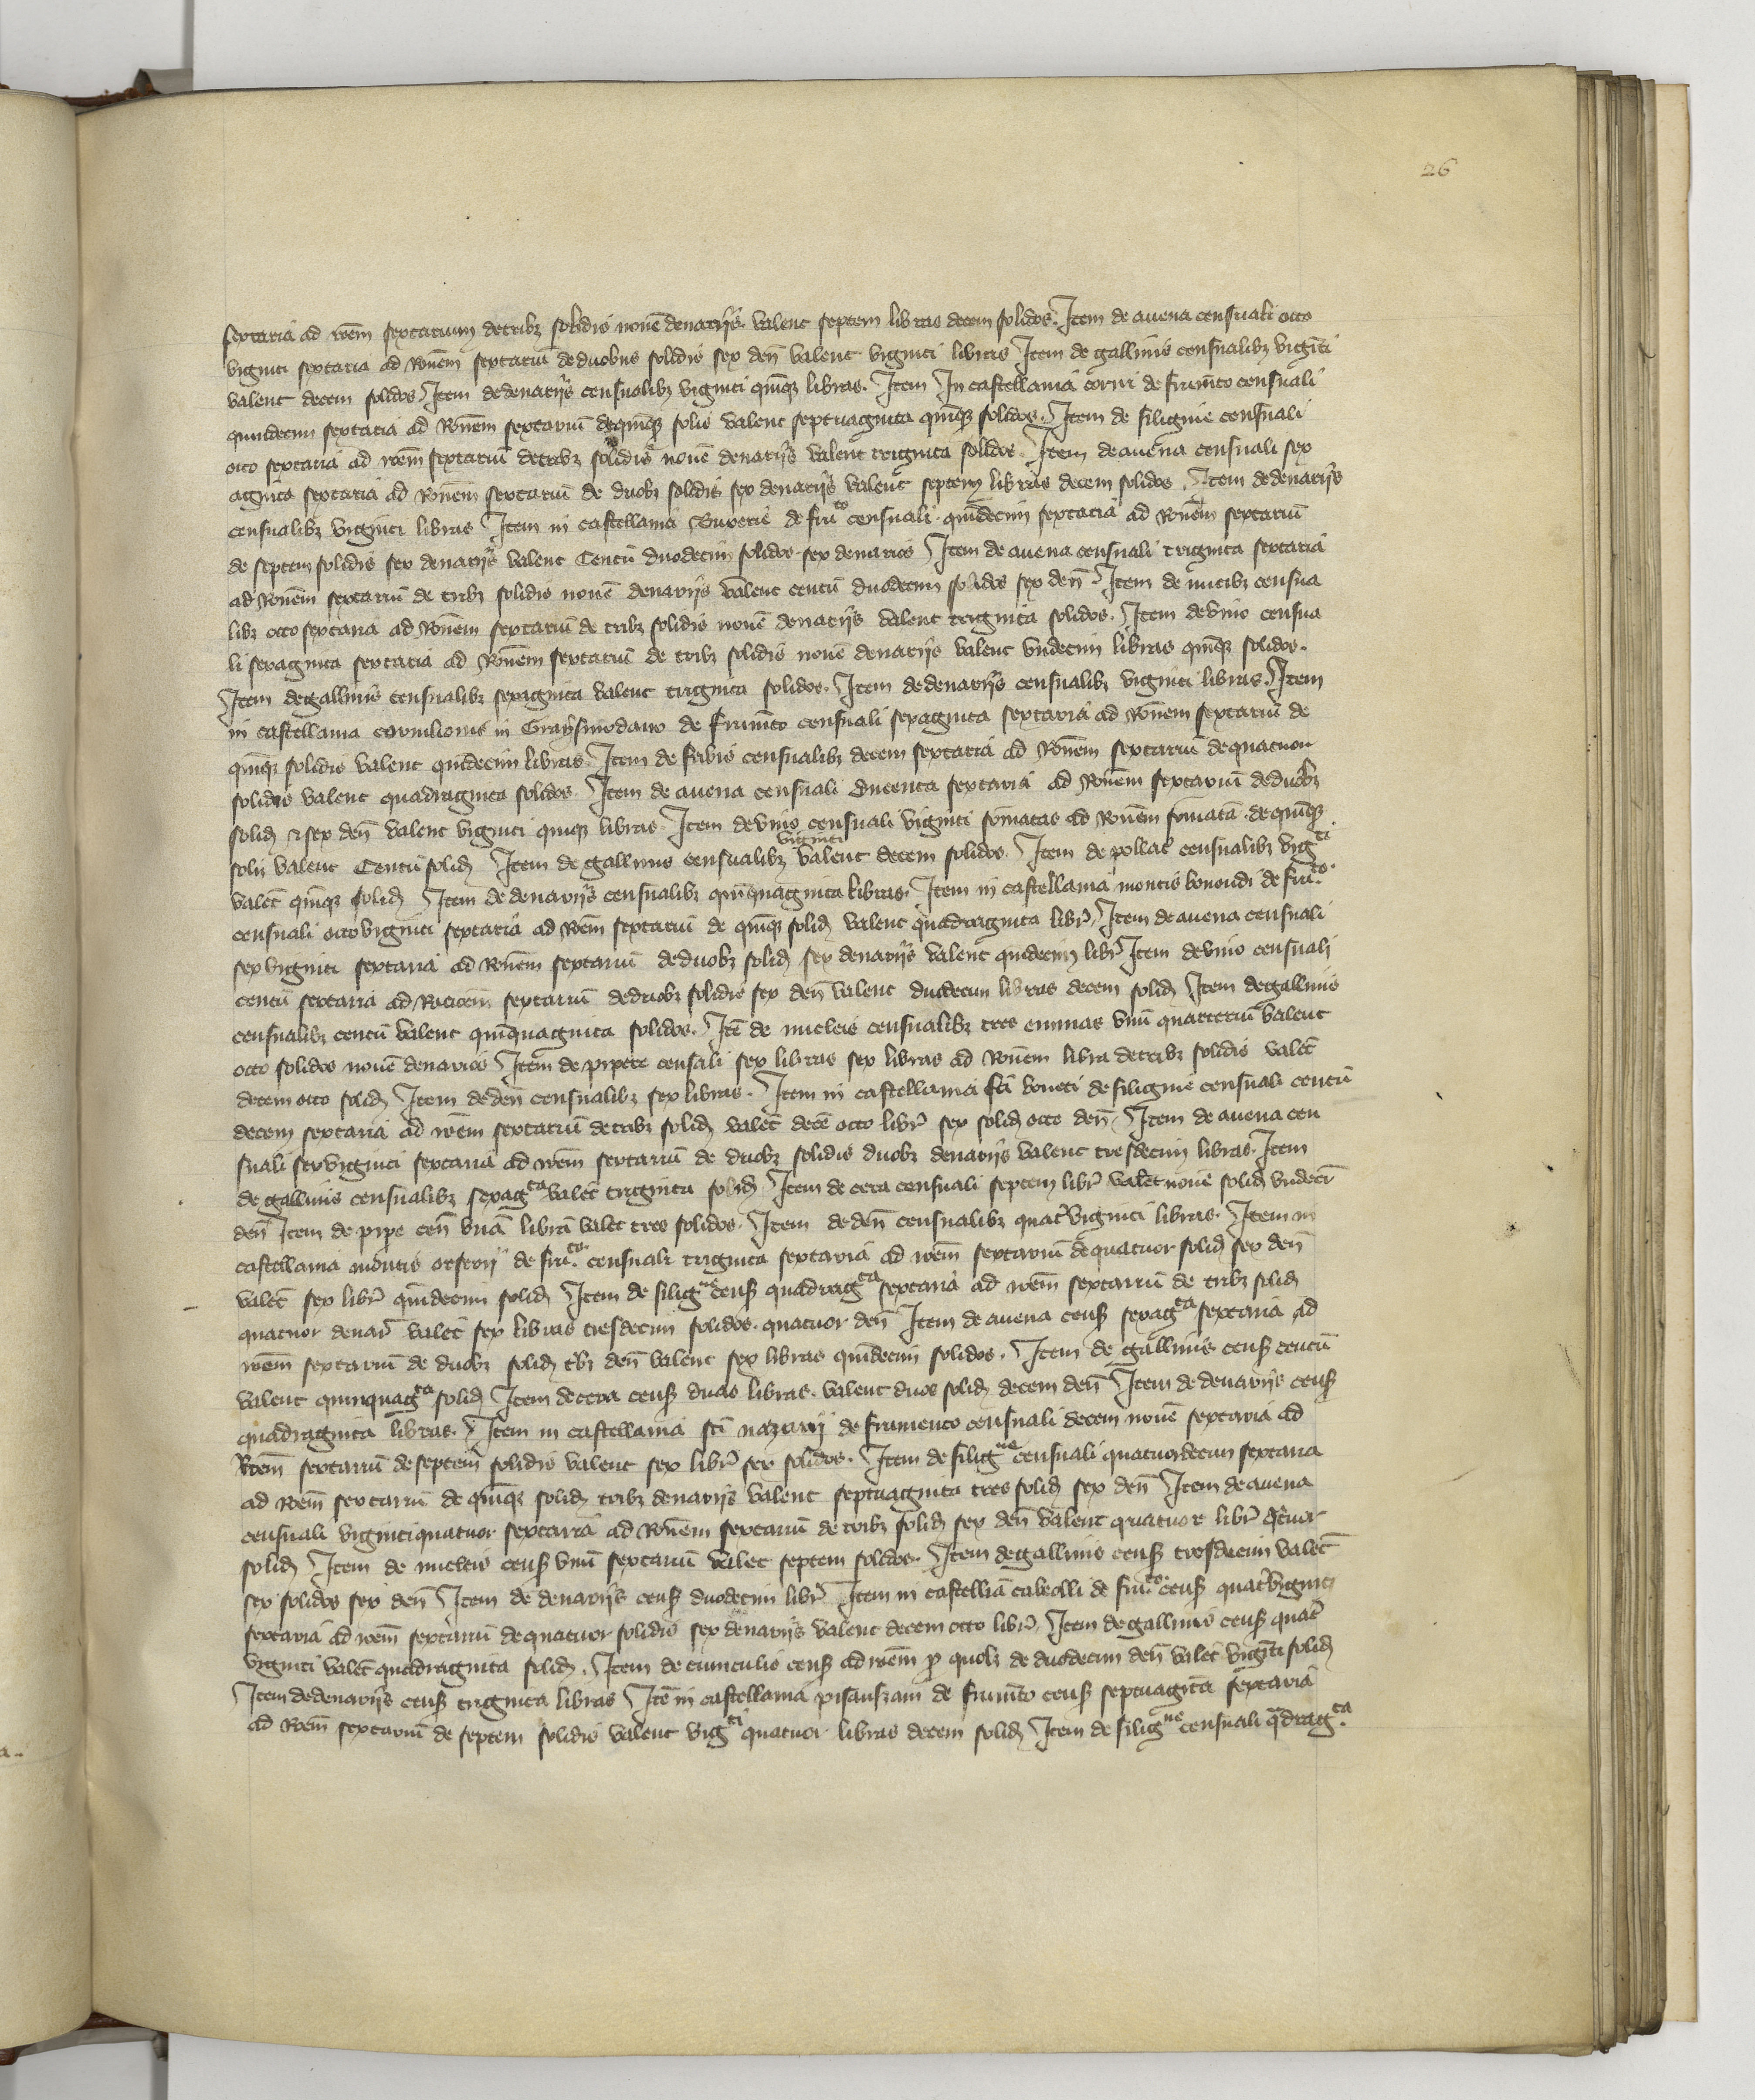 26
sextaria ad rōem sextarium de tribꝫ solidis nouē denarijs valent septem libras decem solidos. Item de auena censuali octo
viginti sextaria ad Rōnem sextariū de duobus solidis sex deñ valent viginti libras Item de gallinis censualibꝫ viginti
valent decem solidos Item de denarijs censualibꝫ viginti quīqꝫ libras. Item In castellania corui de frumēto censuali
quindecim sextaria ad Rōnem sextariū de quīqꝫ solis valent septuaginta quīqꝫ solidos. Item de siligine censuali
octo sextaria ad rōem sextariū de tribꝫ solidis nouē denarijs valent triginta solidos. Item de auena censuali sex
aginta sextaria ad Rōnem sextariū de duobꝫ solidis sex denarijs valent septem libras decem solidos. Item de denarijs
censualibꝫ viginti libras Item in castellania Buxerie de fruᵗᵒ censuali quīdecim sextaria ad Rōnem sextariū
de septem solidis sex denarijs valent Centū duodecim solidos sex denarios Item de auena censuali triginta sextaria
ad Rōnem sextariū de tribꝫ solidis nouē denarijs valent centū duodecim solidos sex deñ. Item de nucibꝫ censua
libꝫ octo sextaria ad Rōnem sextariū de tribꝫ solidis nouē denarijs valent triginta solidos. Item de vino censua
li sexaginta sextaria ad Rōnem sextariū de tribꝫ solidis nouē denarijs valent vndecim libras quīqꝫ solidos.
Item de gallinis censualibꝫ sexaginta valent triginta solidos. Item de denarijs censualibꝫ viginti libras. Item
in castellania cornilionis in Graysiuodano de frumēto censuali sexaginta sextaria ad Rōnem sextariū de
quīqꝫ solidis valent quīdecim libras. Item de fabis censualibꝫ decem sextaria ad Rōnem sextariū de quatuor
solidis valent quadraginta solidos. Item de auena censuali Ducenta sextaria ad Rōnem sextariū de duobꝫ
soliđ ⁊ sex deñ valent viginti quīqꝫ libras. Item de vino censuali viginti somatas ad Rōnem somatā de quīqꝫ
solis valent Centū soliđ Item de gallinis censualibꝫ viginti valent decem solidos. Item de pollac̄ censualibꝫ vigᵗⁱ
valēt quīqꝫ soliđ Item de denarijs censualibꝫ quīquaginta libras. Item in castellania montis bonoudi de fruᵗᵒ
censuali octo viginti sextaria ad Rōem sextariū de quīqꝫ soliđ valent quadraginta libr̄. Item de auena censuali
sex viginti sextaria ad Rōnem sextariū de duobꝫ soliđ sex denarijs valent quīdecim libr̄ Item de vino censuali
centū sextaria ad Racōem sextariū de duobꝫ solidis sex deñ valent duodecim libras decem soliđ Item de gallinis
censualibꝫ centū valent quīquaginta solidos. Itē de nucleis censualibꝫ tres eminas vnū quarteriū valent
octo solidos nouē denarios Item de pipere censali sex libras sex libras ad Rōnem libra de tribꝫ solidis valēt
decem octo soliđ Item de deñ censualibꝫ sex libras. Item in castellania sc̄i boneti de siligine censuali centū
decem sextaria ad rōem sextariū de tribꝫ soliđ valēt decē octo libr̄ sex soliđ octo deñ. Item de auena cen
suali sex viginti sextaria ad rōem sextariū de duobꝫ solidis duobꝫ denarijs valent tresdecim libras. Item
de gallinis censualibꝫ sexagᵗᵃ valēt triginta soliđ Item de cera censuali septem libr̄ valēt nouē soliđ vndecī
deñ Item de pipe ceñ vnā librā valēt tres solidos. Item de deñ censualibꝫ quat̄ viginti libras. Item in
castellania de fruᵗᵒ censuali triginta sextaria ad rōem sextariū de quatuor soliđ sex deñ
valēt sex libr̄ quīdecim soliđ Item de siligⁿᵉ cenſ quadragᵗᵃ sextaria ad rōem sextariū de tribꝫ soliđ
quatuor denar̄ valēt sex libras tresdecim solidos quatuor deñ Item de auena cenſ sexagᵗᵃ sextaria ad
rōem sextariū de duobꝫ soliđ tⁱbꝫ deñ valent sex libras quīdecim solidos. Item de gallinis cenſ centū
valent quinquagᵗᵃ soliđ Item de cera cenſ duas libras valent duos soliđ decem deñ Item de denarijs cenſ
quadraginta libras. Item in castellania sc̄i nazarij de frumento censuali decem nouē sextaria ad
Rōem sextariū de septem solidis valent sex libr̄ sex solidos. Item de siligⁿᵉ censuali quatuordecim sextaria
ad rōem sextariū de quīqꝫ soliđ tribꝫ denarijs valent septuaginta tres soliđ sex deñ Item de auena
censuali viginti quatuor sextaria ad Rōnem sextariū de tribꝫ soliđ sex deñ valent quatuor libr̄ q̄tuor
soliđ Item de nucleis cenſ vnū sextariū valet septem solidos. Item de gallinis cenſ tresdecim valēt
sex solidos sex deñ Item de denarijs cenſ duodecim libr̄ Item in castellīa caleolli de fruᵗᵒ cenſ quat̄ viginti
sextaria ad rōem sextariū de quatuor solidis sex denarijs valent decem octo libr̄ Item de gallinis cenſ quat̄
viginti valēt quadraginta soliđ. Item de cuniculis cenſ ad rōem ꝓ quolꝫ de duodecim deñ valēt viginti soliđ
Item de denarijs cenſ triginta libras Itē in castellania pisanszani de frumēto cenſ septuaginta sextaria
ad Rōem sextariū de septem solidis valent vigᵗⁱ quatuor libras decem soliđ Item de siligⁿᵉ censuali q̄dragᵗᵃ